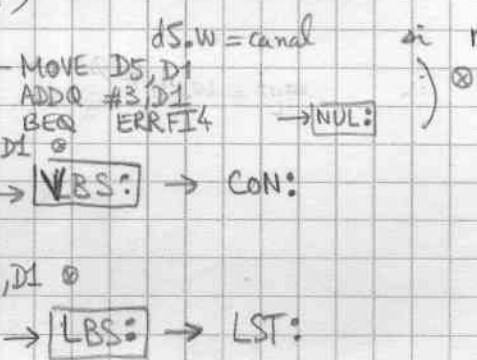 d5.W = canal si
MOVE D5,D1
ADDQ #3,D1
BEQ ERRFI4 → NUL: ) ⊗
D1 ⊗
→ VBS: → CON:
,D1 ⊗
→ LBS: → LST: